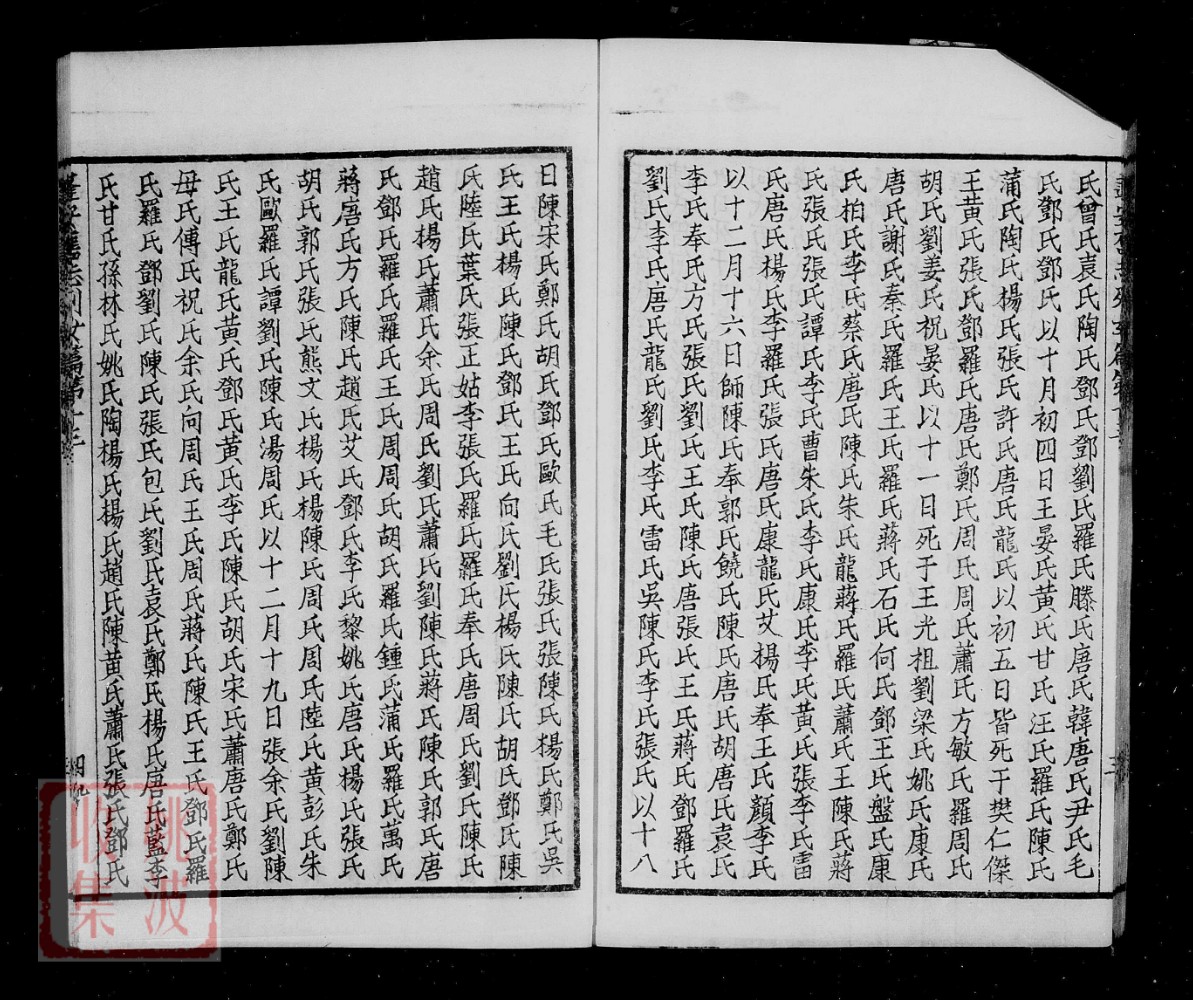 氏曾氏袁氏陶氏鄧氏鄧劉氏羅氏滕氏唐氏韓唐氏尹氏毛
氏鄧氏鄧氏以十月初四日王晏氏黃氏甘氏汪氏羅氏陳氏
蒲氏陶氏楊氏張氏許氏唐氏龍氏以初五日皆死于樊仁傑
王黃氏張氏鄧羅氏唐氏鄭氏周氏周氏蕭氏方敏氏羅周氏
胡氏劉姜氏祝晏氏以十一日死于王光祖劉梁氏姚氏康氏
唐氏謝氏秦氏羅氏王氏羅氏蔣氏石氏何氏鄧王氏盤氏康
氏柏氏李氏蔡氏唐氏陳氏朱氏龍蔣氏羅氏蕭氏王陳氏蔣
氏張氏張氏譚氏李氏曹朱氏李氏康氏李氏黃氏張李氏雷
氏唐氏楊氏李羅氏張氏唐氏康龍氏艾楊氏奉王氏顏李氏
以十二月十六日師陳氏奉郭氏饒氏陳氏唐氏胡唐氏袁氏
李氏奉氏方氏張氏劉氏王氏陳氏唐張氏王氏蔣氏鄧羅氏
劉氏李氏唐氏龍氏劉氏李氏雷氏吳陳氏李氏張氏以十八
日陳宋氏鄭氏胡氏鄧氏歐氏毛氏張氏張陳氏楊氏鄭氏吳
氏王氏楊氏陳氏鄧氏王氏向氏劉氏楊氏陳氏胡氏鄧氏陳
氏陸氏葉氏張正姑李張氏羅氏羅氏奉氏唐周氏劉氏陳氏
趙氏楊氏蕭氏余氏周氏劉氏蕭氏劉陳氏蔣氏陳氏郭氏唐
氏鄧氏羅氏羅氏王周氏周氏胡氏羅氏鍾氏蒲氏羅氏萬氏
蔣唐氏方氏陳氏趙氏艾氏鄧氏李氏黎姚氏唐氏楊氏張氏
胡氏郭氏張氏熊文氏楊氏楊陳氏周氏周氏陸氏黃彭氏朱
氏歐羅氏譚劉氏陳氏湯周氏以十二月十九日張余氏劉陳
氏王氏龍氏黃氏鄧氏黃氏李氏陳氏胡氏宋氏蕭唐氏鄭氏
母氏傅氏祝氏余氏向周氏王氏周氏蔣氏陳氏王氏鄧氏羅
氏羅氏鄧劉氏陳氏張氏包氏劉氏袁氏鄭氏楊氏唐氏藍李
氏甘氏孫林氏姚氏陶楊氏楊氏趙氏陳黃氏蕭氏張氏鄧氏
姚波
收集